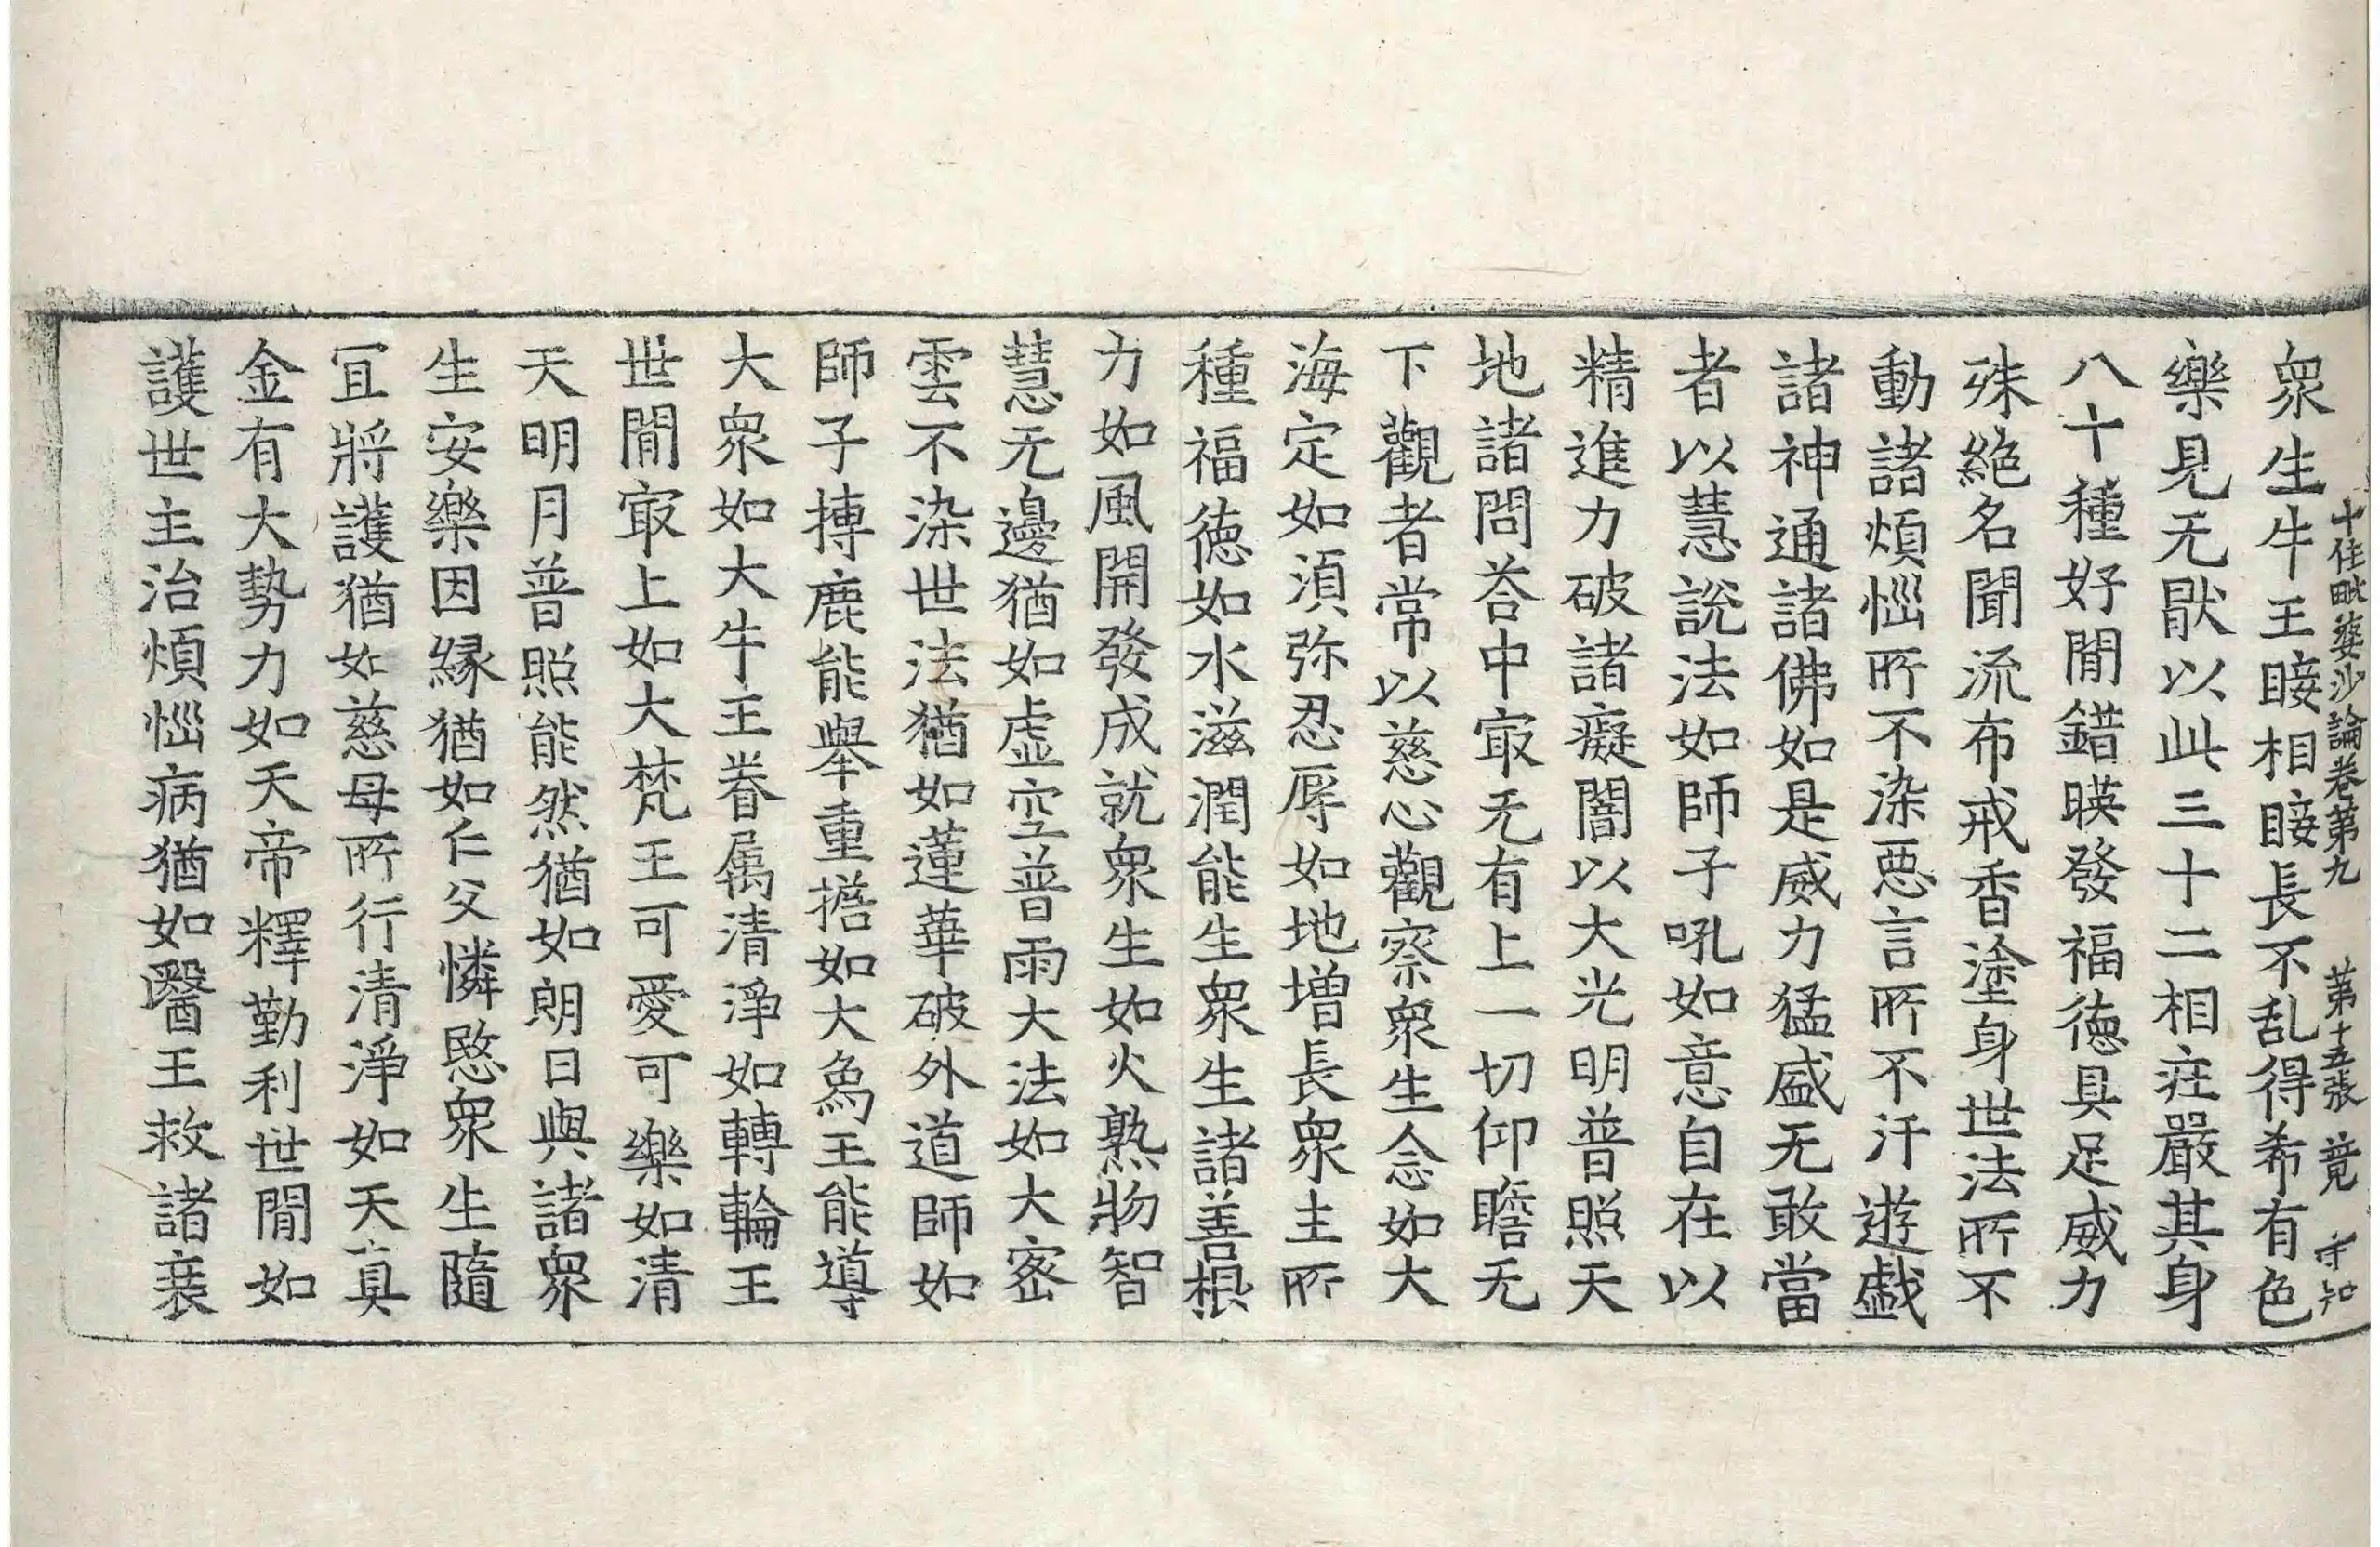 十住毗婆沙論卷第九 第十五張 竟 守知
衆生牛王睫相睫長不乱得希有色
樂見无猒以此三十二相疰嚴其身
八十種好閒錯暎發福徳具足威力
殊絶名聞流布戒香塗身世法所不
動諸煩惱所不染惡言所不汙遊戲
諸神通諸佛如是威力猛盛无敢當
者以慧說法如師子吼如意自在以
精進力破諸癡闇以大光明普照天
地諸問荅中㝡无有上一切仰瞻无
下觀者常以慈心觀察衆生念如大
海定如湏弥忍辱如地增長衆生所
種福徳如水滋潤能生衆生諸善根
力如風開發成就衆生如火熟物智
慧无邊猶如虛空普雨大法如大密
雲不染世法猶如蓮華破外道師如
師子搏鹿能舉重擔如大象王能導
大衆如大牛王眷属清淨如轉輪王
世閒㝡上如大梵王可愛可樂如清
天明月普照能然猶如朗日與諸衆
生安樂因緣猶如仁父憐愍衆生隨
冝將護猶如慈母所行清淨如天真
金有大勢力如天帝釋勤利世閒如
護世主治煩惱病猶如醫王救諸衰